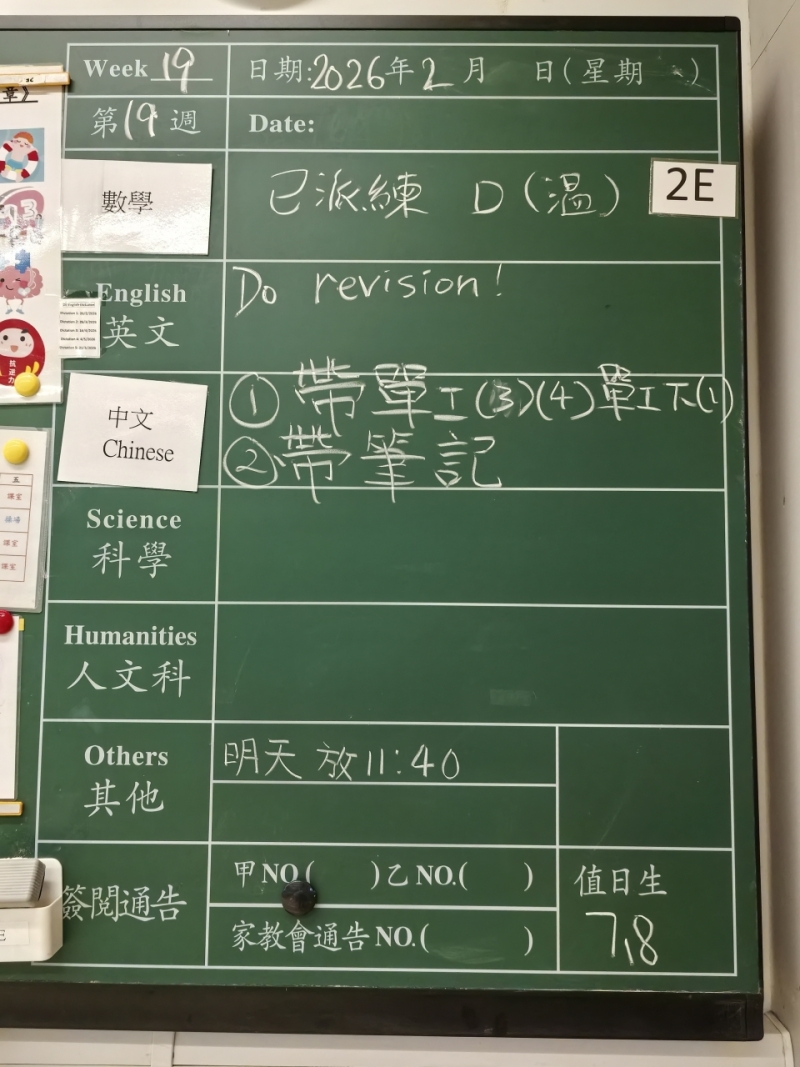 Week 19
日期:2026年2月 日(星期 )
第19週
Date:
數學
已派練 D(溫)
2E
English
英文
Do revision!
中文
Chinese
①帶單工(3)(4)單工下(1)
②帶筆記
Science
科學
Humanities
人文科
Others
其他
明天 放11:40
簽閱通告
甲NO.( )乙NO.( )
家教會通告NO.( )
值日生
7,8
章》
抗逆力
五
課室
操場
課室
課室